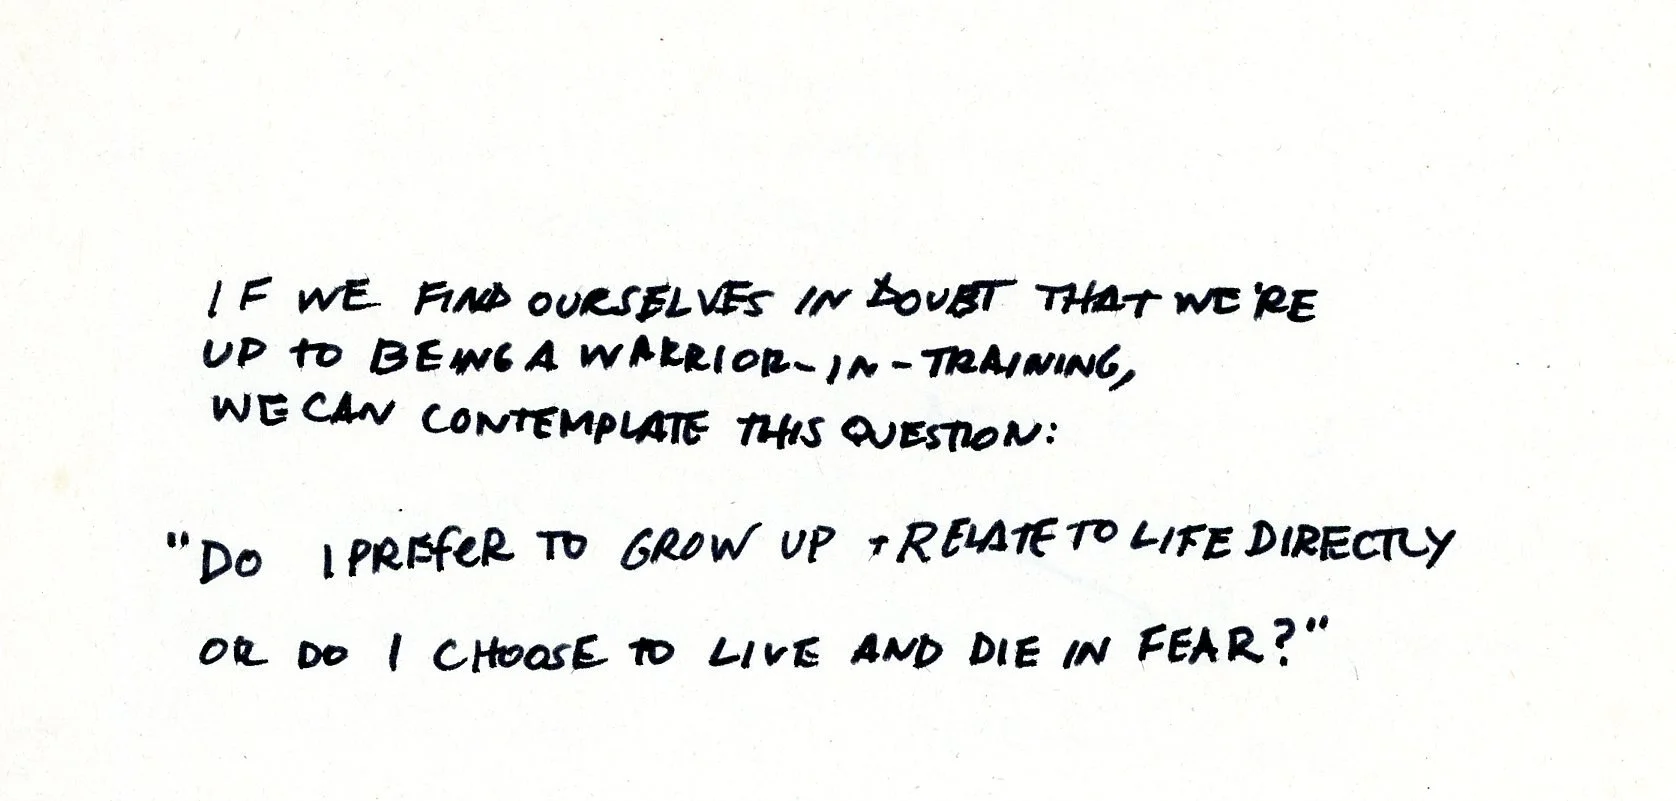 IF WE FIND OURSELVES IN DOUBT THAT WE'RE
UP TO BEING A WARRIOR-IN-TRAINING,
WE CAN CONTEMPLATE THIS QUESTION:
"DO I PREFER TO GROW UP + RELATE TO LIFE DIRECTLY
OR DO I CHOOSE TO LIVE AND DIE IN FEAR?"